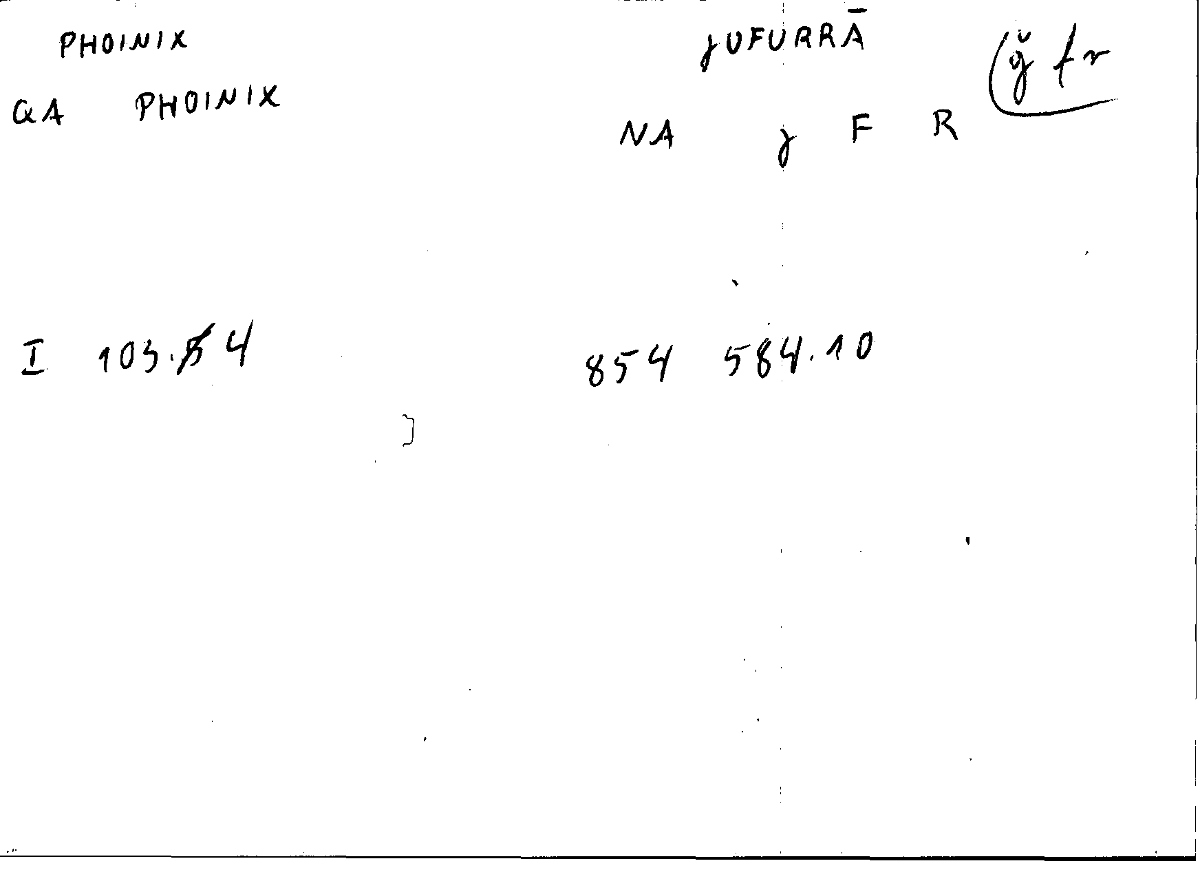 PHOINIX jUFURRĀ (ǧ fr
QA PHOINIX NA j F R
I 103.4 854 584.10